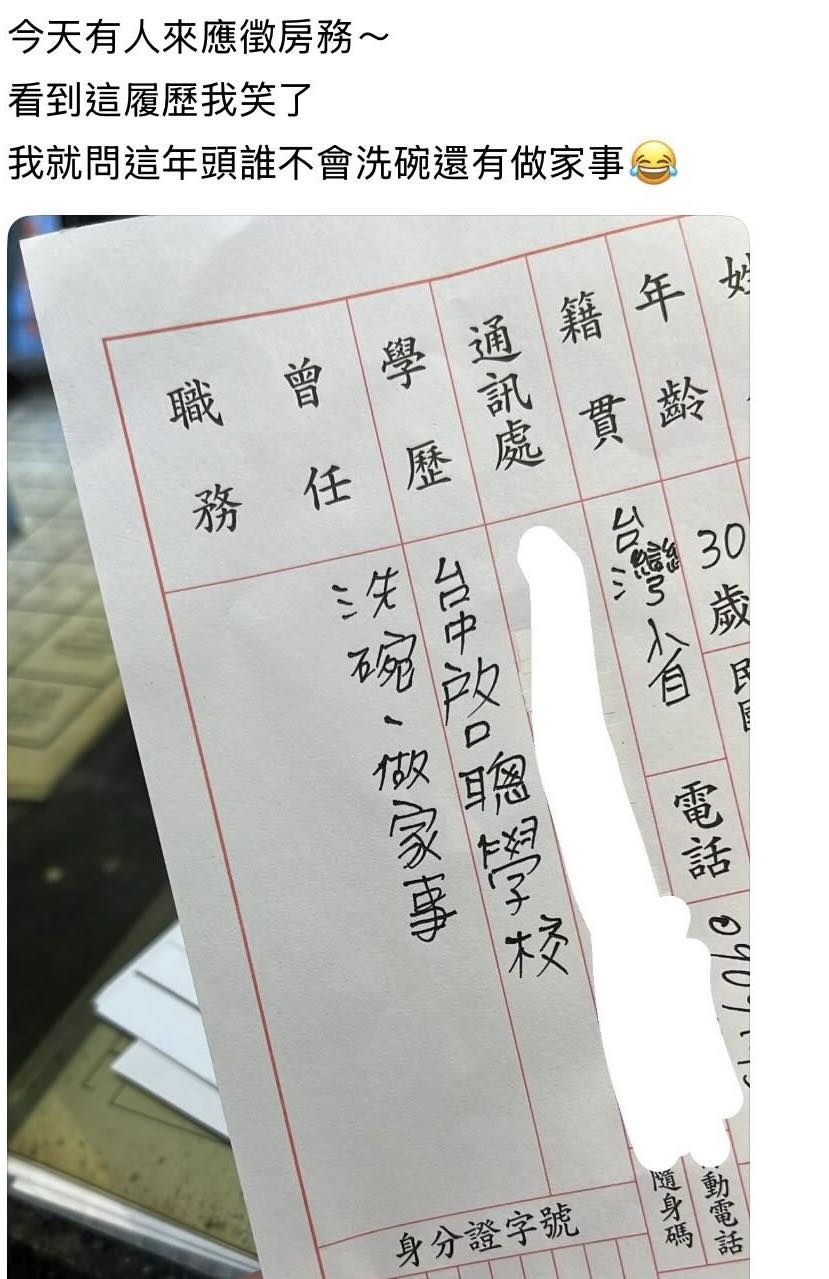 今天有人來應徵房務～
看到這履歷我笑了
我就問這年頭誰不會洗碗還有做家事😂
姓
年齡
30歲
民國
籍貫
台灣省
電話
通訊處
學歷
台中啟聰學校
曾任職務
洗碗、做家事
動電話
隨身碼
身分證字號